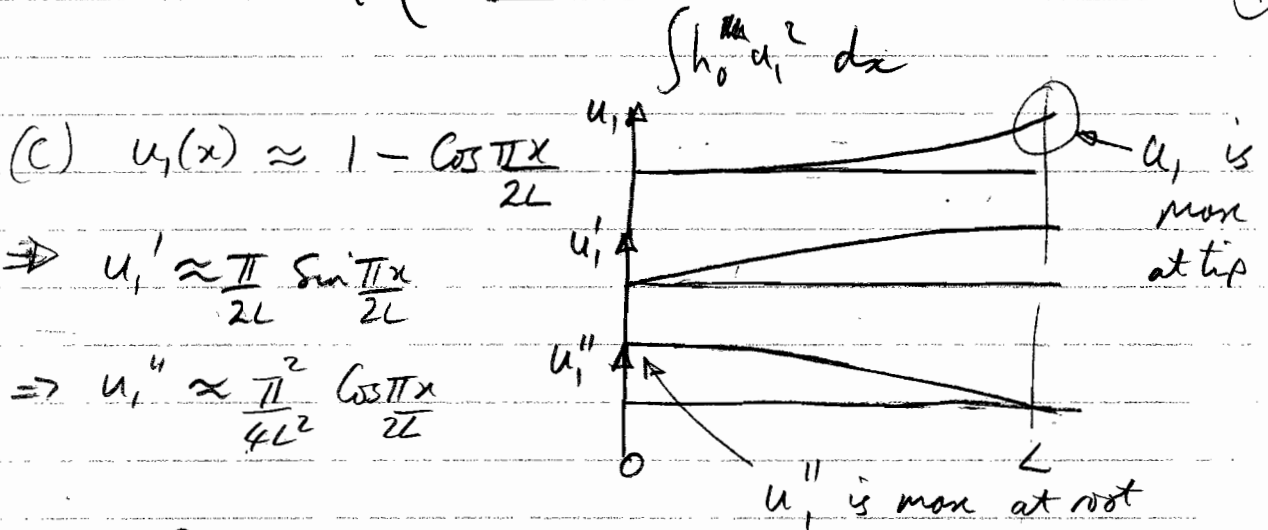 ∫h₀ u₁² dx
(C) u₁(x) ≈ 1 − Cos πx/2L
⇒ u₁' ≈ π/2L Sin πx/2L
⇒ u₁'' ≈ π²/4L² Cos πx/2L
u₁
u₁ is
max
at tip
u₁'
u₁''
0
L
u₁'' is max at root